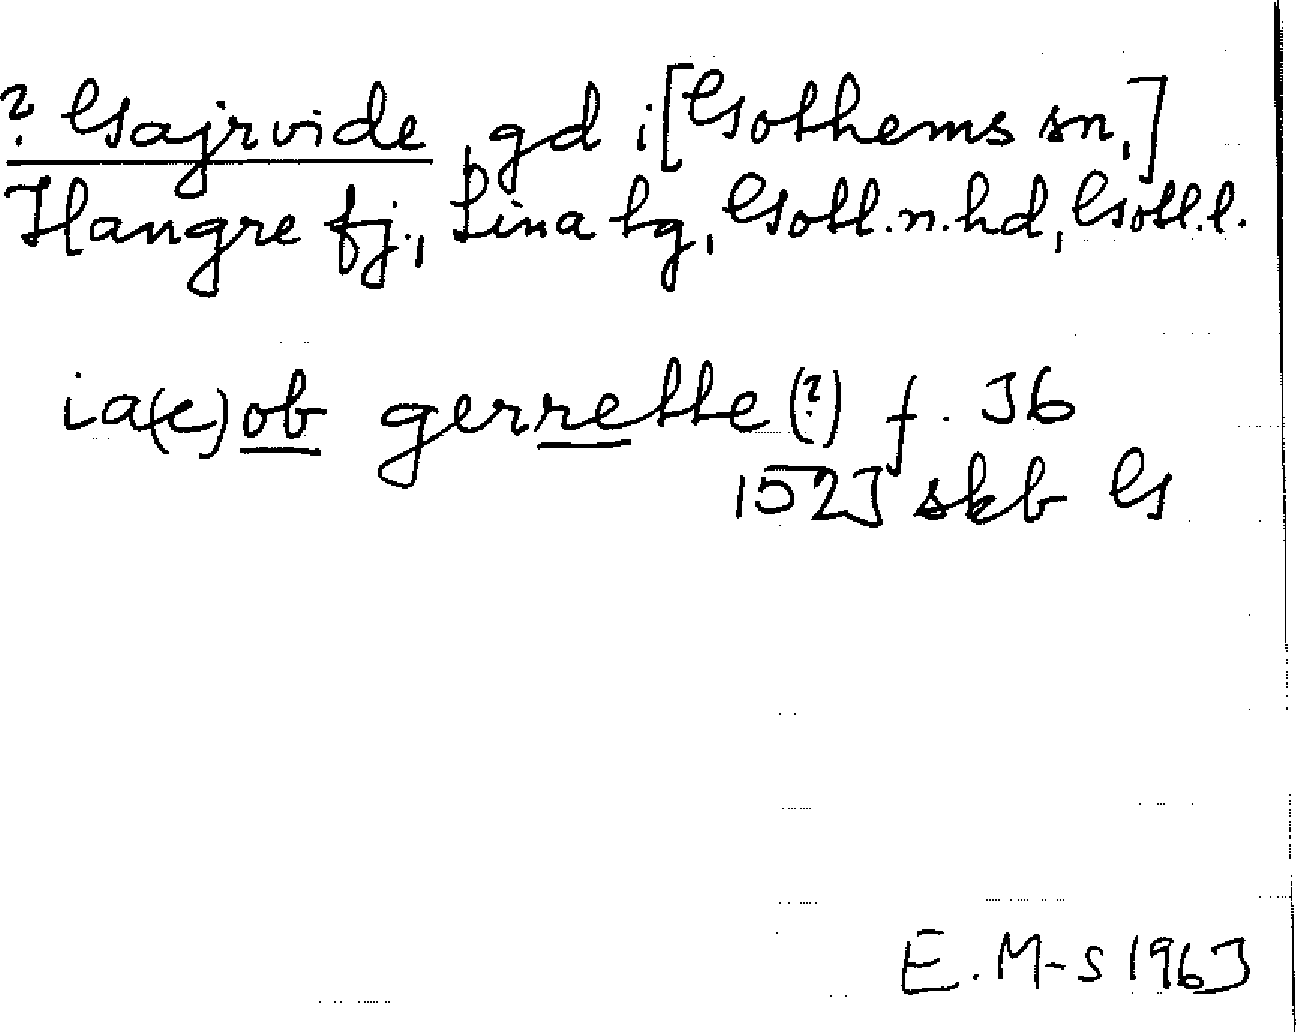 ? Gajrvide, gd i [Gothems sn,]
Hangre fj., Lina tg, Gotl. n. hd, Gotl. l.
ia(c)ob gerrette (?) f. 36
1523 skb G
E. M-s 1963